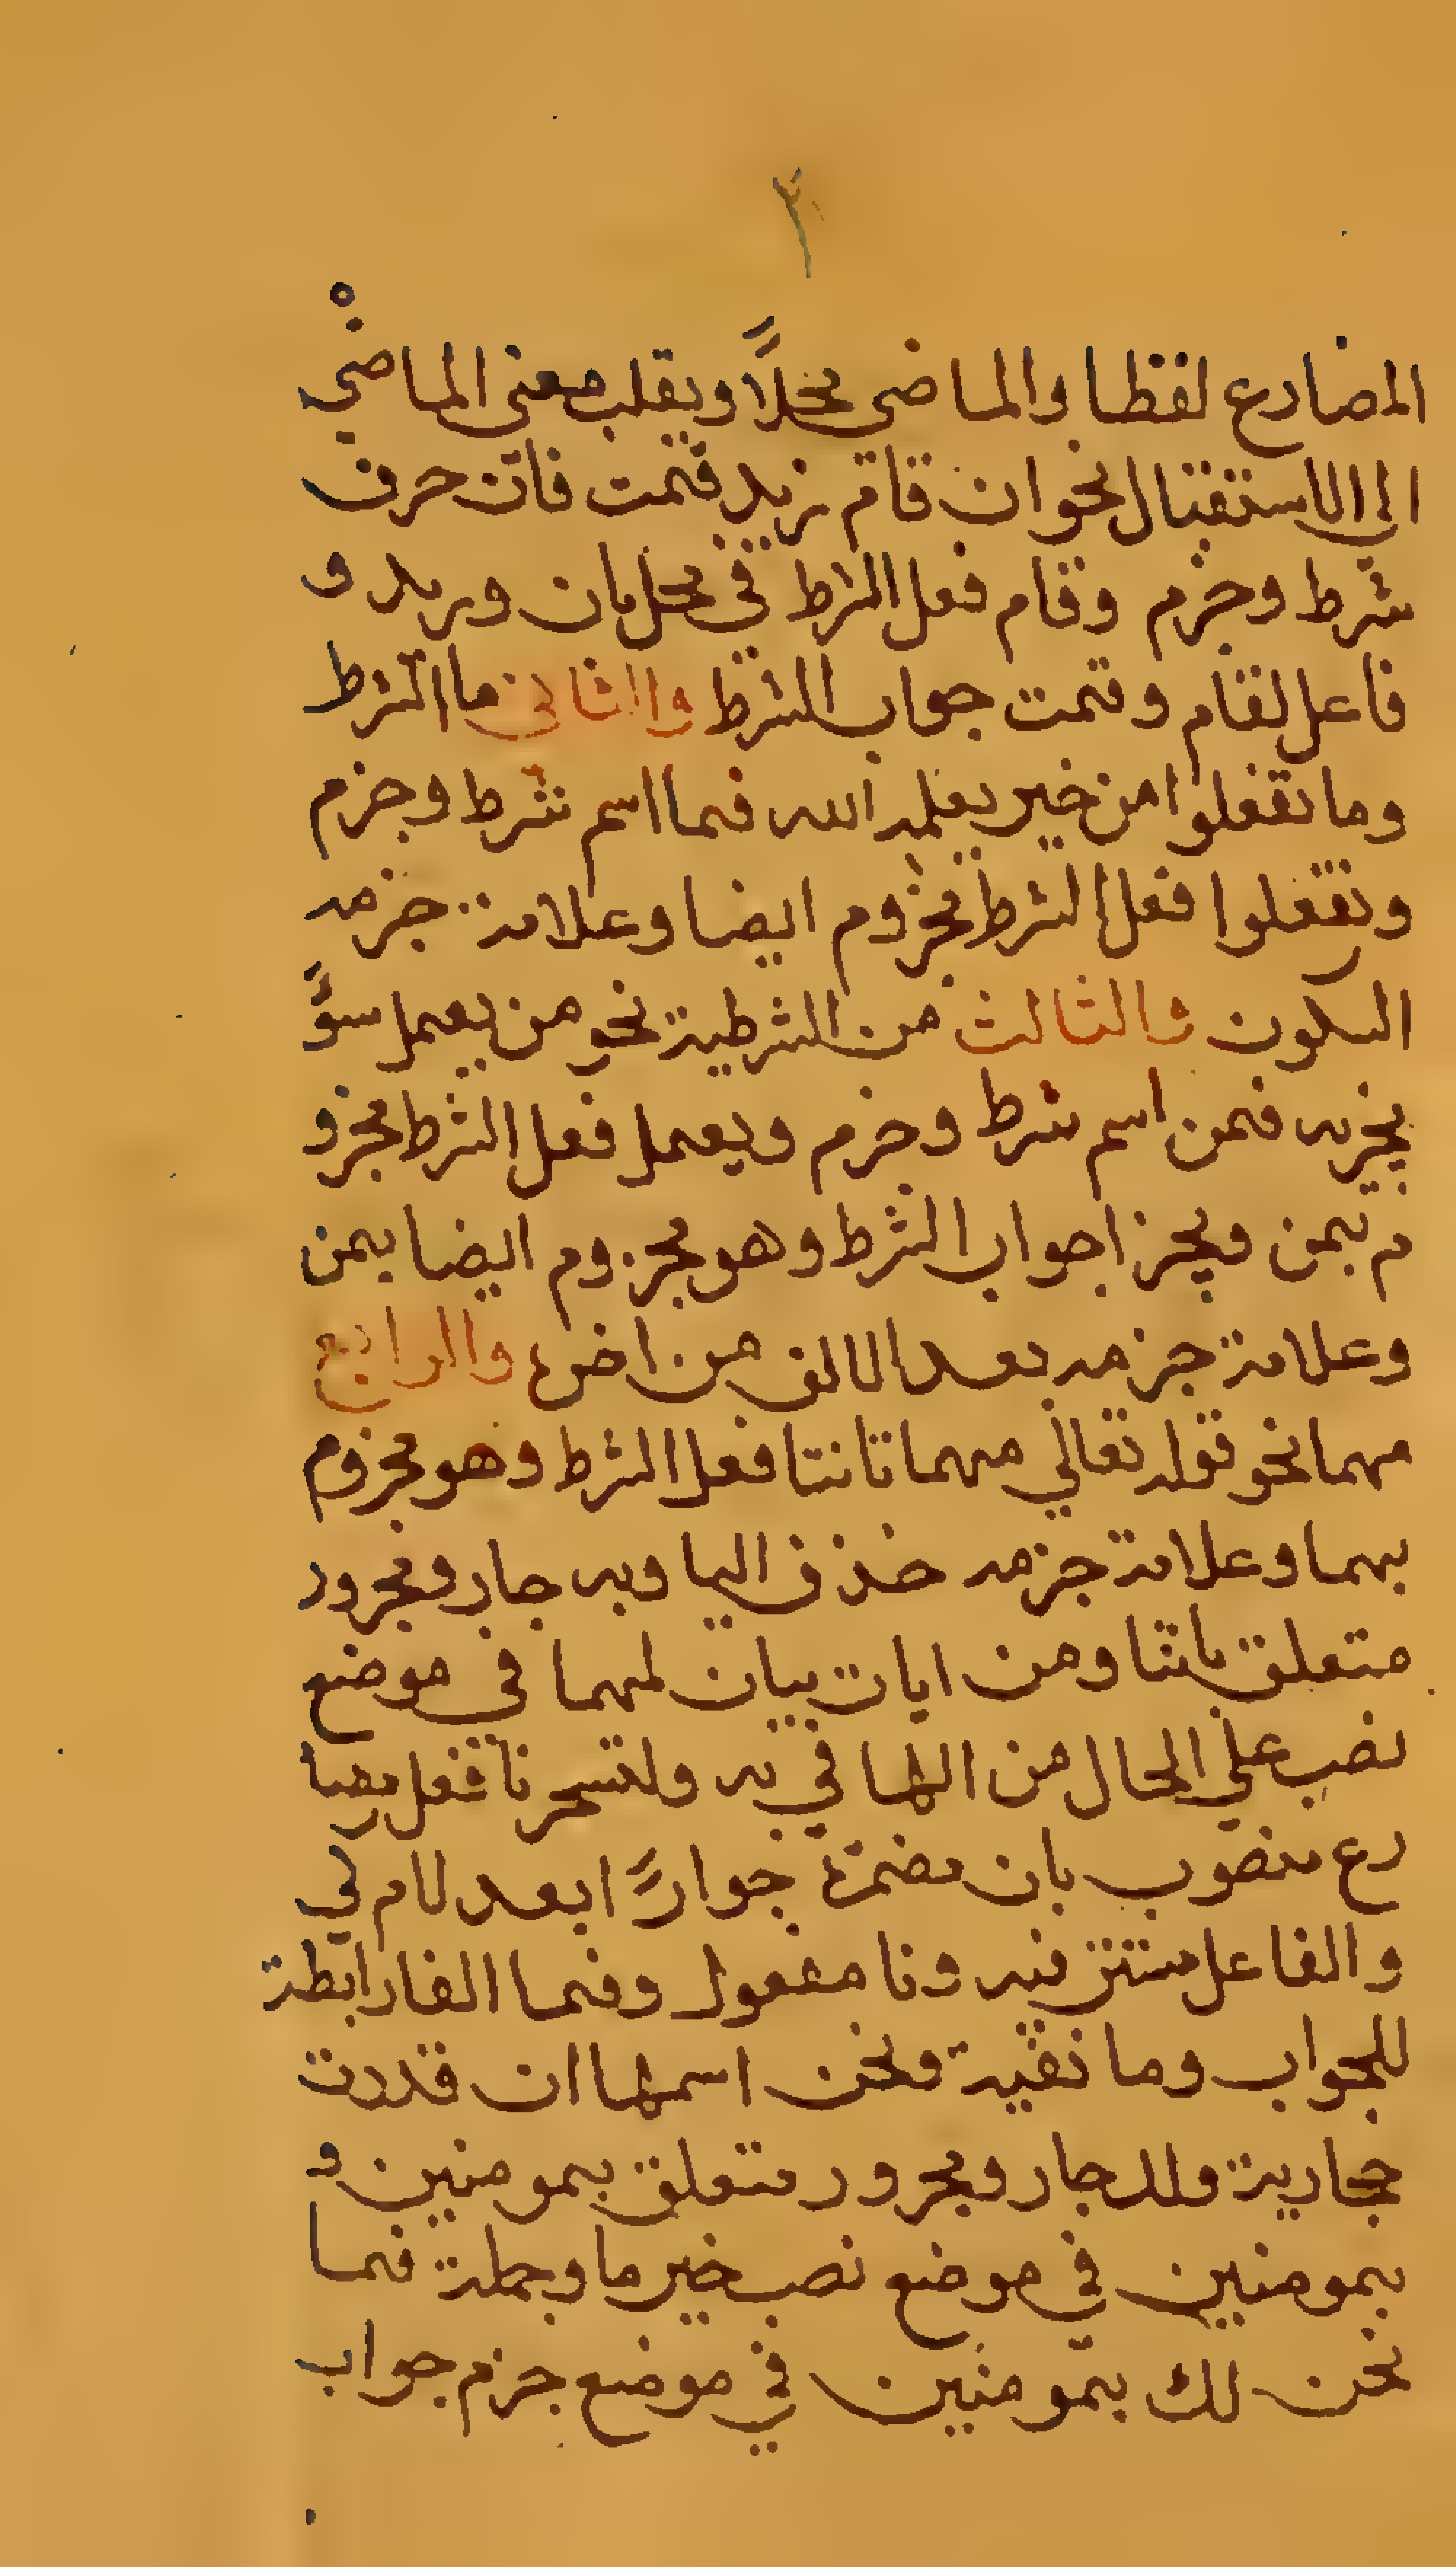 ٢
المضارع لفظا والماضي محلاً ويقلب معني الماضي
الي الاستقبال نحو ان قام زيد قمت فان حرف
شرط وجزم وقام فعل الشرط في محل بان وزيد و
فاعل لقام وقمت جواب الشرط والثاني ما الشرط
وما تفعلوا من خير يعلمه الله فما اسم شرط وجزم
وتفعلوا فعل الشرط مجزوم ايضا وعلامة جزمه
السكون والثالث من الشرطية نحو من يعمل سوًّ
يجز به فمن اسم شرط وجزم ويعمل فعل الشرط مجزو
م بمن ويجز اجواب الشرط وهو مجزوم ايضا بمن
وعلامة جزمه بعد الالف من اخره والرابع
مهما نحو قوله تعالي مهما تاتنا فعل الشرط وهو مجزوم
بهما وعلامة جزمه حذف اليا وبه جار ومجرور
متعلق باتنا ومن ايات بيان لمهما في موضع
نصب علي الحال من الها في به ولتسحرنا فعل مضا
رع منصوب بان مضمرة جوازًا بعد لام كي
والفاعل مستتر فيه ونا مفعول وفما الفا رابطة
للجواب وما نفية ونحن اسمها ان قدرت
جارية وله جار ومجرور متعلق بمومنين و
بمومنين في موضع نصب خبر ما وجملة فما
نحن لك بمومنين في موضع جزم جواب